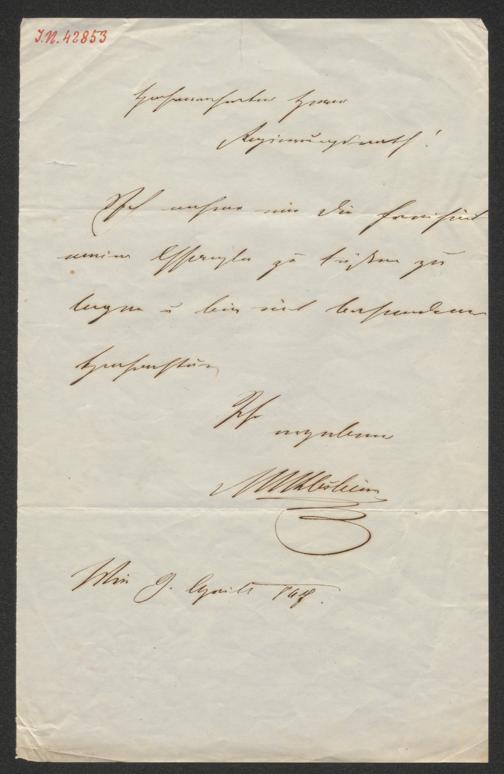 I.N. 42853
Hochverehrter Herr
Regierungsrath!
Ich nehme mir die Freiheit
meine zu Füßen zu
legen u bin mit besonderer
Hochachtung
Ihr
ergebener
Wien 9. April